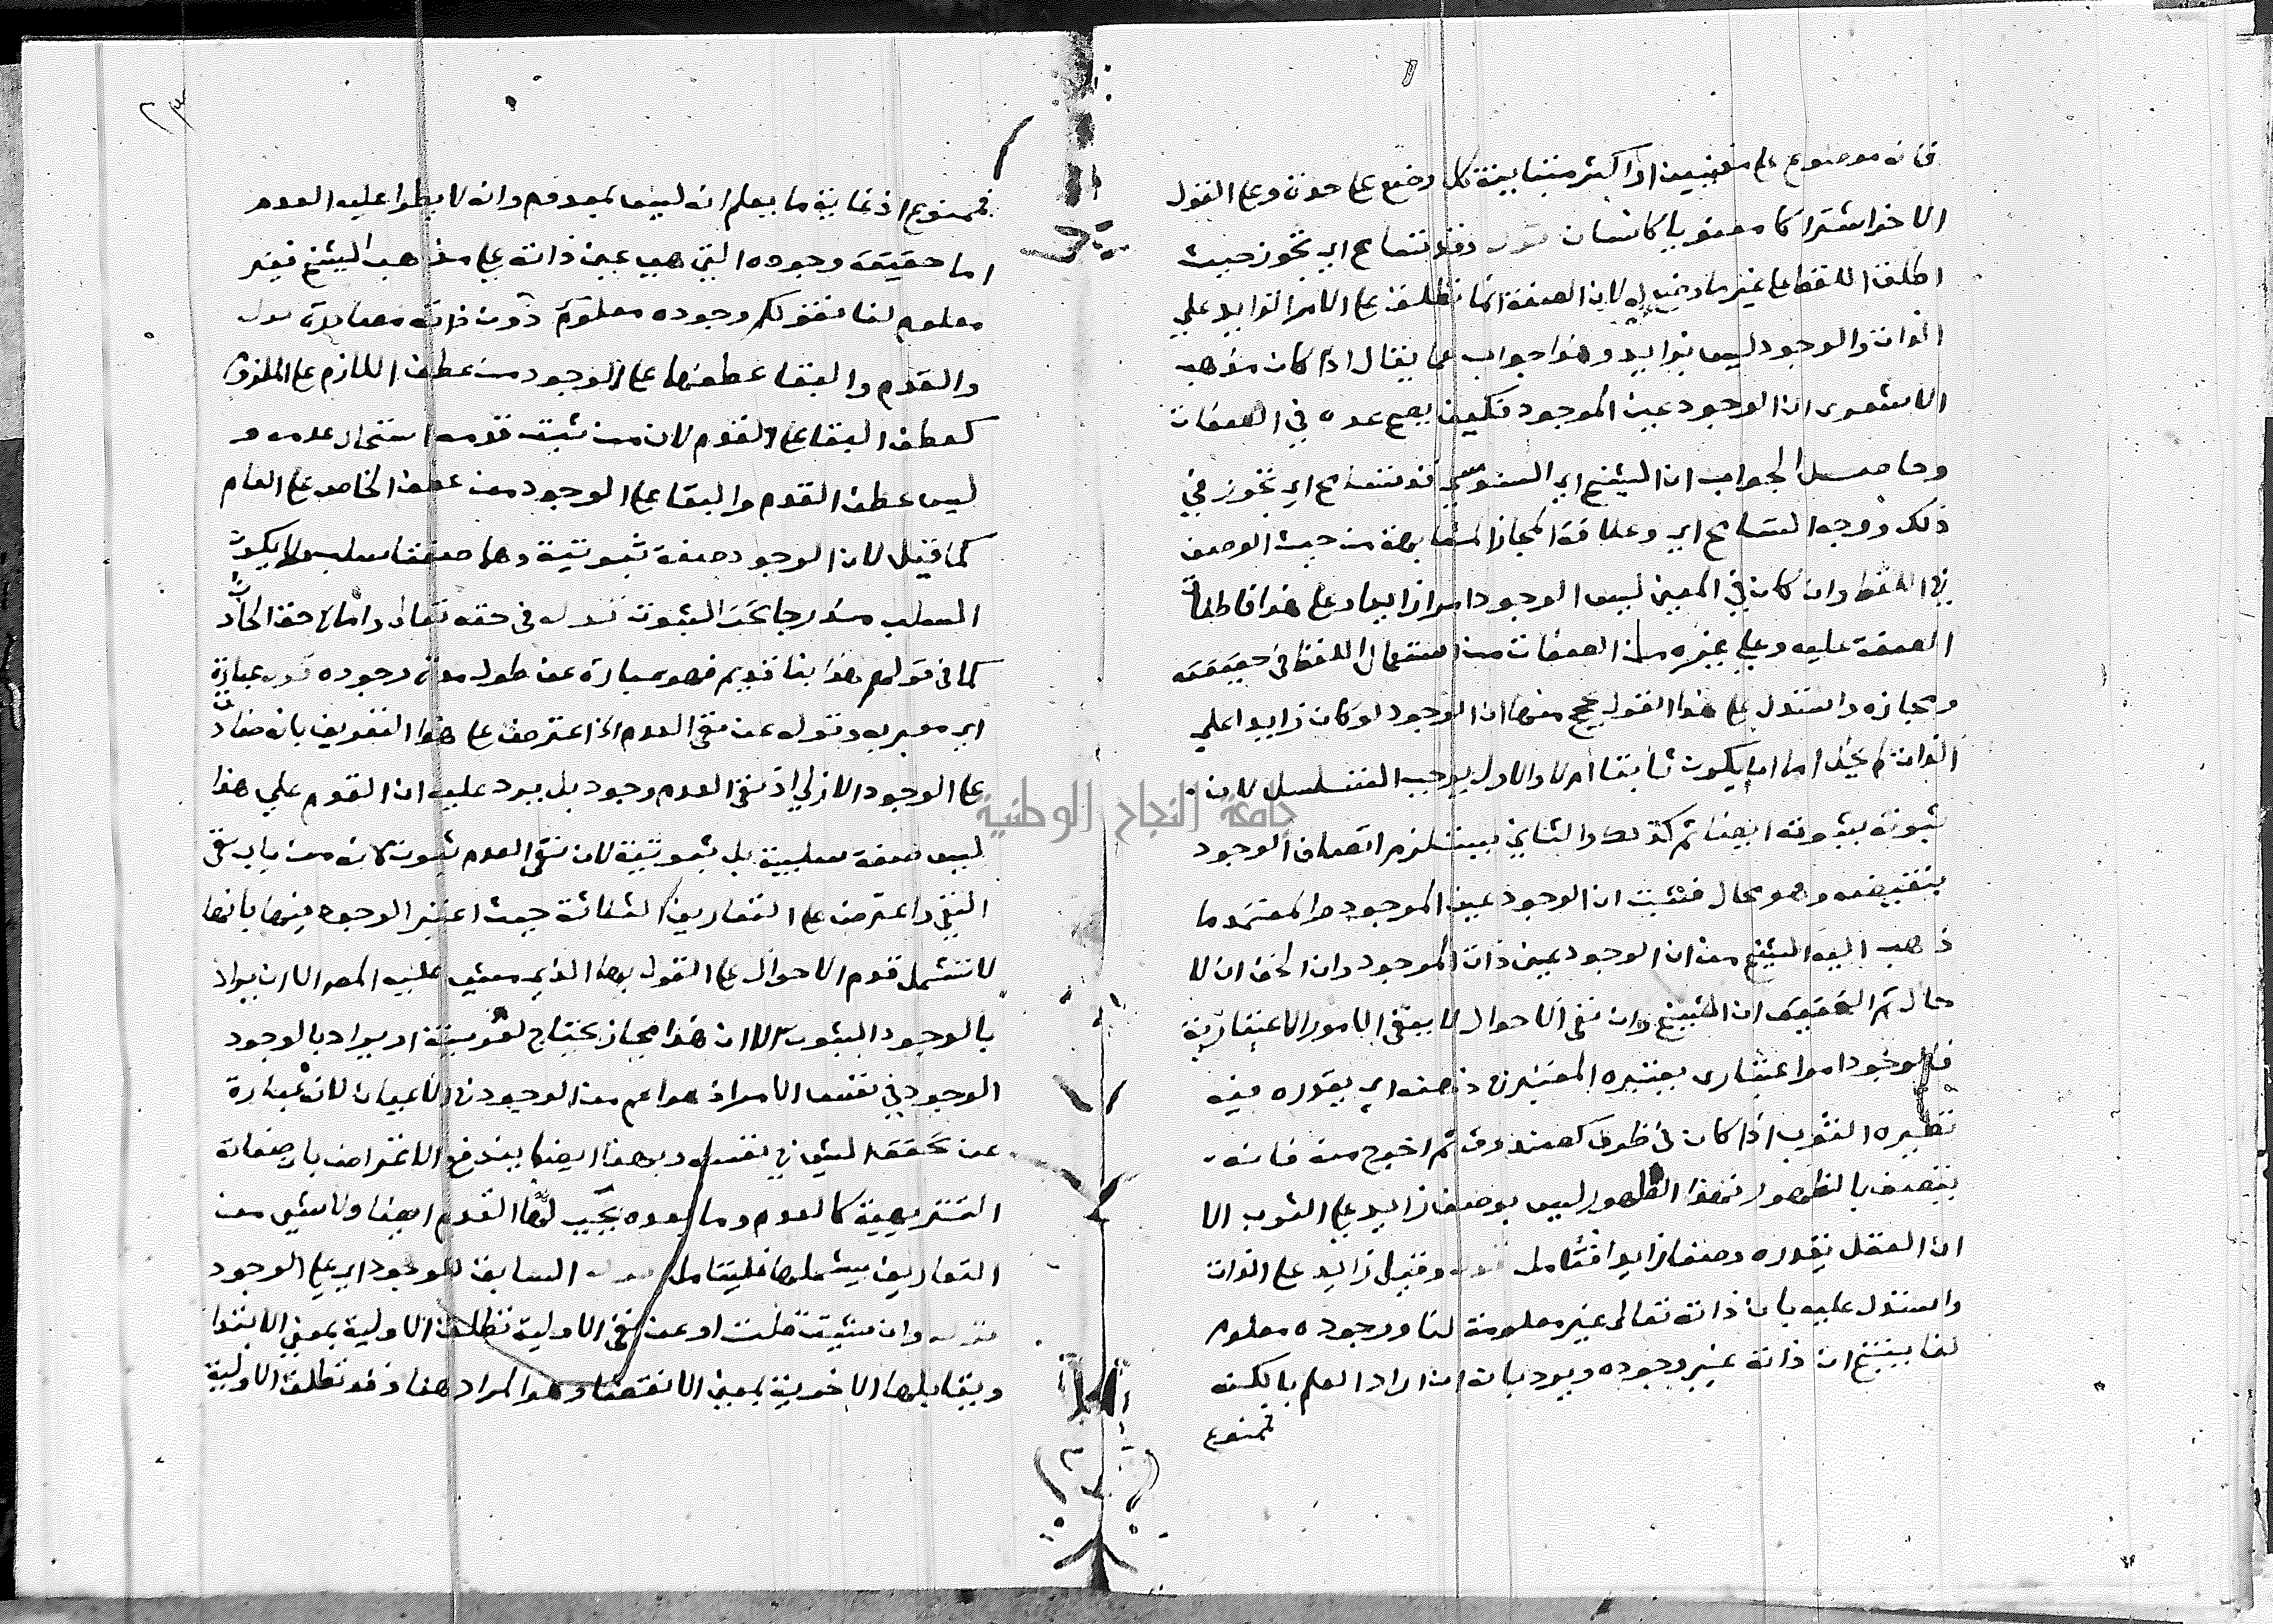 فانه موضوع على معنيين او اكثر متباينة كل وضع على حدته وعلى القول
الاخر اشتراكا معنويا كانسان قوله وفيه تسامح اي تجوز حيث
اطلق اللفظ على غير ما وضع له لان الصفة انما تطلق على الامر الزايد على
الذات والوجود ليس بزايد وهذا جواب عما يقال اذا كان مذهب
الاشعرى ان الوجود عين الموجود فكيف يصح عده في الصفات
وحاصل الجواب ان الشيخ اي السنوسي قد تسامح اي تجوز في
ذلك ووجه التسامح اي وعلاقة المجاز المشابهة من حيث الوصف
في اللفظ وان كان في المعنى ليس الوجود امرا زايدا وعلى هذا فاطلاق
الصفة عليه وعلى غيره من الصفات من استعمال اللفظ في حقيقته
ومجازه واستدل على هذا القول بحجج منها ان الوجود لو كان زايدا على
الذات لم يخل اما ان يكون ثابتا ام لا والاول يوجب التسلسل لان
ثبوته بثبوته ايضا ثم كذلك والثاني يستلزم اتصاف الوجود
بنقيضه وهو محال فثبت ان الوجود عين الموجود والمعتمد ما
ذهب اليه الشيخ من ان الوجود عين ذات الموجود وان الحق ان لا
حال ثم التحقيق ان الشيخ وان نفى الاحوال لا ينفى الامور الاعتبارية
فالوجود امر اعتبارى يعتبره المعتبر في ذهنه اي يقدره فيه
نظيره الثوب اذا كان في ظرف كصندوق ثم اخرج منه فانه
يتصف بالظهور فهذا الظهور ليس بوصف زايد على الثوب الا
ان العقل يقدره وصفا زايدا فتامل قوله وقيل زايد على الذات
واستدل عليه بان ذاته تعالى غير معلومة لنا ووجوده معلوم
لنا ينتج ان ذاته غير وجوده ويرد بانه ان اراد العلم بالكنه
فممنوع
فممنوع اذ غاية ما يعلم انه ليس بمعدوم وانه لا يطرا عليه العدم
اما حقيقة وجوده التي هي عين ذاته على مذهب الشيخ فغير
معلوم لنا فقولكم وجوده معلوم دون ذاته مصادرة قوله
والقدم والبقا عطفها على الوجود من عطف اللازم على الملزوم
كعطف البقا على القدم لان من ثبت قدمه استحال عدمه و
ليس عطف القدم والبقا على الوجود من عطف الخاص على العام
كما قيل لان الوجود صفة ثبوتية وهما صفتا سلب ولا يكون
السلب مندرجا تحت الثبوت قوله في حقه تعالى واما في حق الحادث
كما في قولهم هذا بنا قديم فهو عبارة عن طول مدة وجوده قوله عبارة
اي معبر به وقوله عن نفى العدم الخ اعترض على هذا التعريف بانه صادق
على الوجود الازلي اذ نفى العدم وجود بل يرد عليه ان القدم على هذا
ليس صفة سلبية بل ثبوتية لان نفى العدم ثبوت لانه من باب نفى
النفى واعترض على التعاريف الثلاثة حيث اعتبر الوجود فيها بانها
لا تشمل قدم الاحوال على القول بها الذي مشى عليه المص الا ان يراد
بالوجود الثبوت الا ان هذا مجاز يحتاج لقرينة او يراد بالوجود
الوجود في نفس الامر اذ هو اعم من الوجود في الاعيان لانه عبارة
عن تحقق الشى في نفسه وبهذا ايضا يندفع الاعتراض بان صفاته
التنزيهية كالعدم وما بعده يجب لها القدم ايضا ولا شى من
التعاريف يشملها فليتامل قوله السابق للوجود اي على الوجود
قوله وان شيت قلت او عن نفى الاولية تطلق الاولية بمعنى الابتدا
ويقابلها الاخرية بمعنى الانقضا وهو المراد هنا وقد تطلق الاولية
جامعة النجاح الوطنية